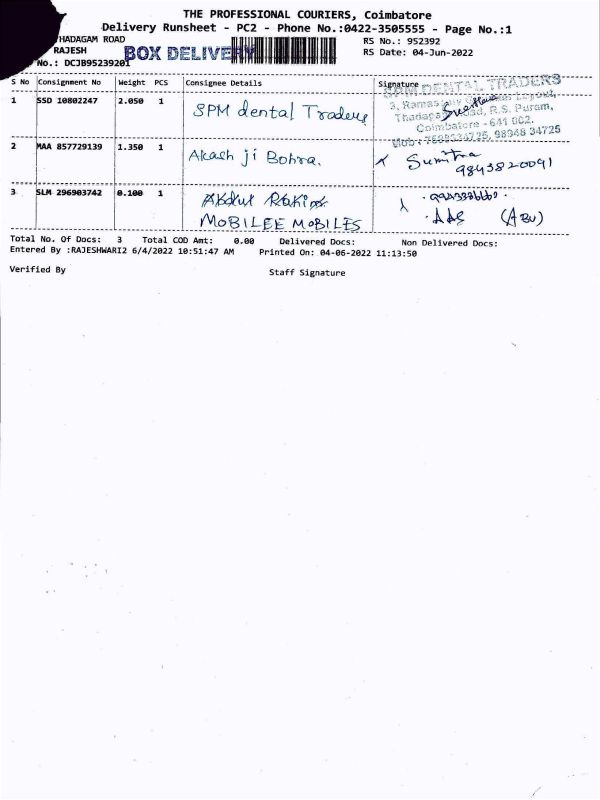 THE PROFESSIONAL COURIERS, Coimbatore
Delivery Runsheet - PC2 - Phone No.:0422-3505555 - Page No.:1
HADAGAM ROAD
RS No.: 952392
RAJESH
BOX DELIVERY
RS Date: 04-Jun-2022
No.: DCJB95239201
S No Consignment No Weight PCS Consignee Details Signature
1 SSD 10802247 2.050 1 SPM dental Traders
SPM DENTAL TRADERS
R.S. Puram,
Coimbatore - 641 002.
98948 34725
2 MAA 857729139 1.350 1 Akash ji Bohra. Sumitra
9843820091
3 SLM 296903742 0.100 1 Abdul
MOBILEE MOBILES (ABU)
Total No. Of Docs: 3 Total COD Amt: 0.00 Delivered Docs: Non Delivered Docs:
Entered By :RAJESHWARI2 6/4/2022 10:51:47 AM Printed On: 04-06-2022 11:13:50
Verified By Staff Signature